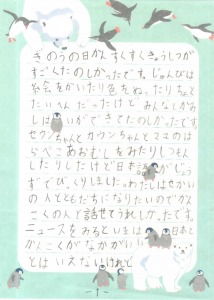 きのうの日かんすくすくきょうしつが
すごくたのしかったです。じゅんびは
絵をかいたり色をぬったりちょっと
たいへんだったけどみんなとかみ
しばいができてたのしかったです。
セウンちゃんとカウンちゃんとママのは
らぺこあおむしをみたりしつもん
したりしたけど日本語がじょう
ずでびっくりしました。わたしはせかい
の人とともだちになりたいのでかん
こくの人と話せてうれしかったです。
ニュースをみるといまは日本と
かんこくがなかがいい
とはいえないけれど
-1-